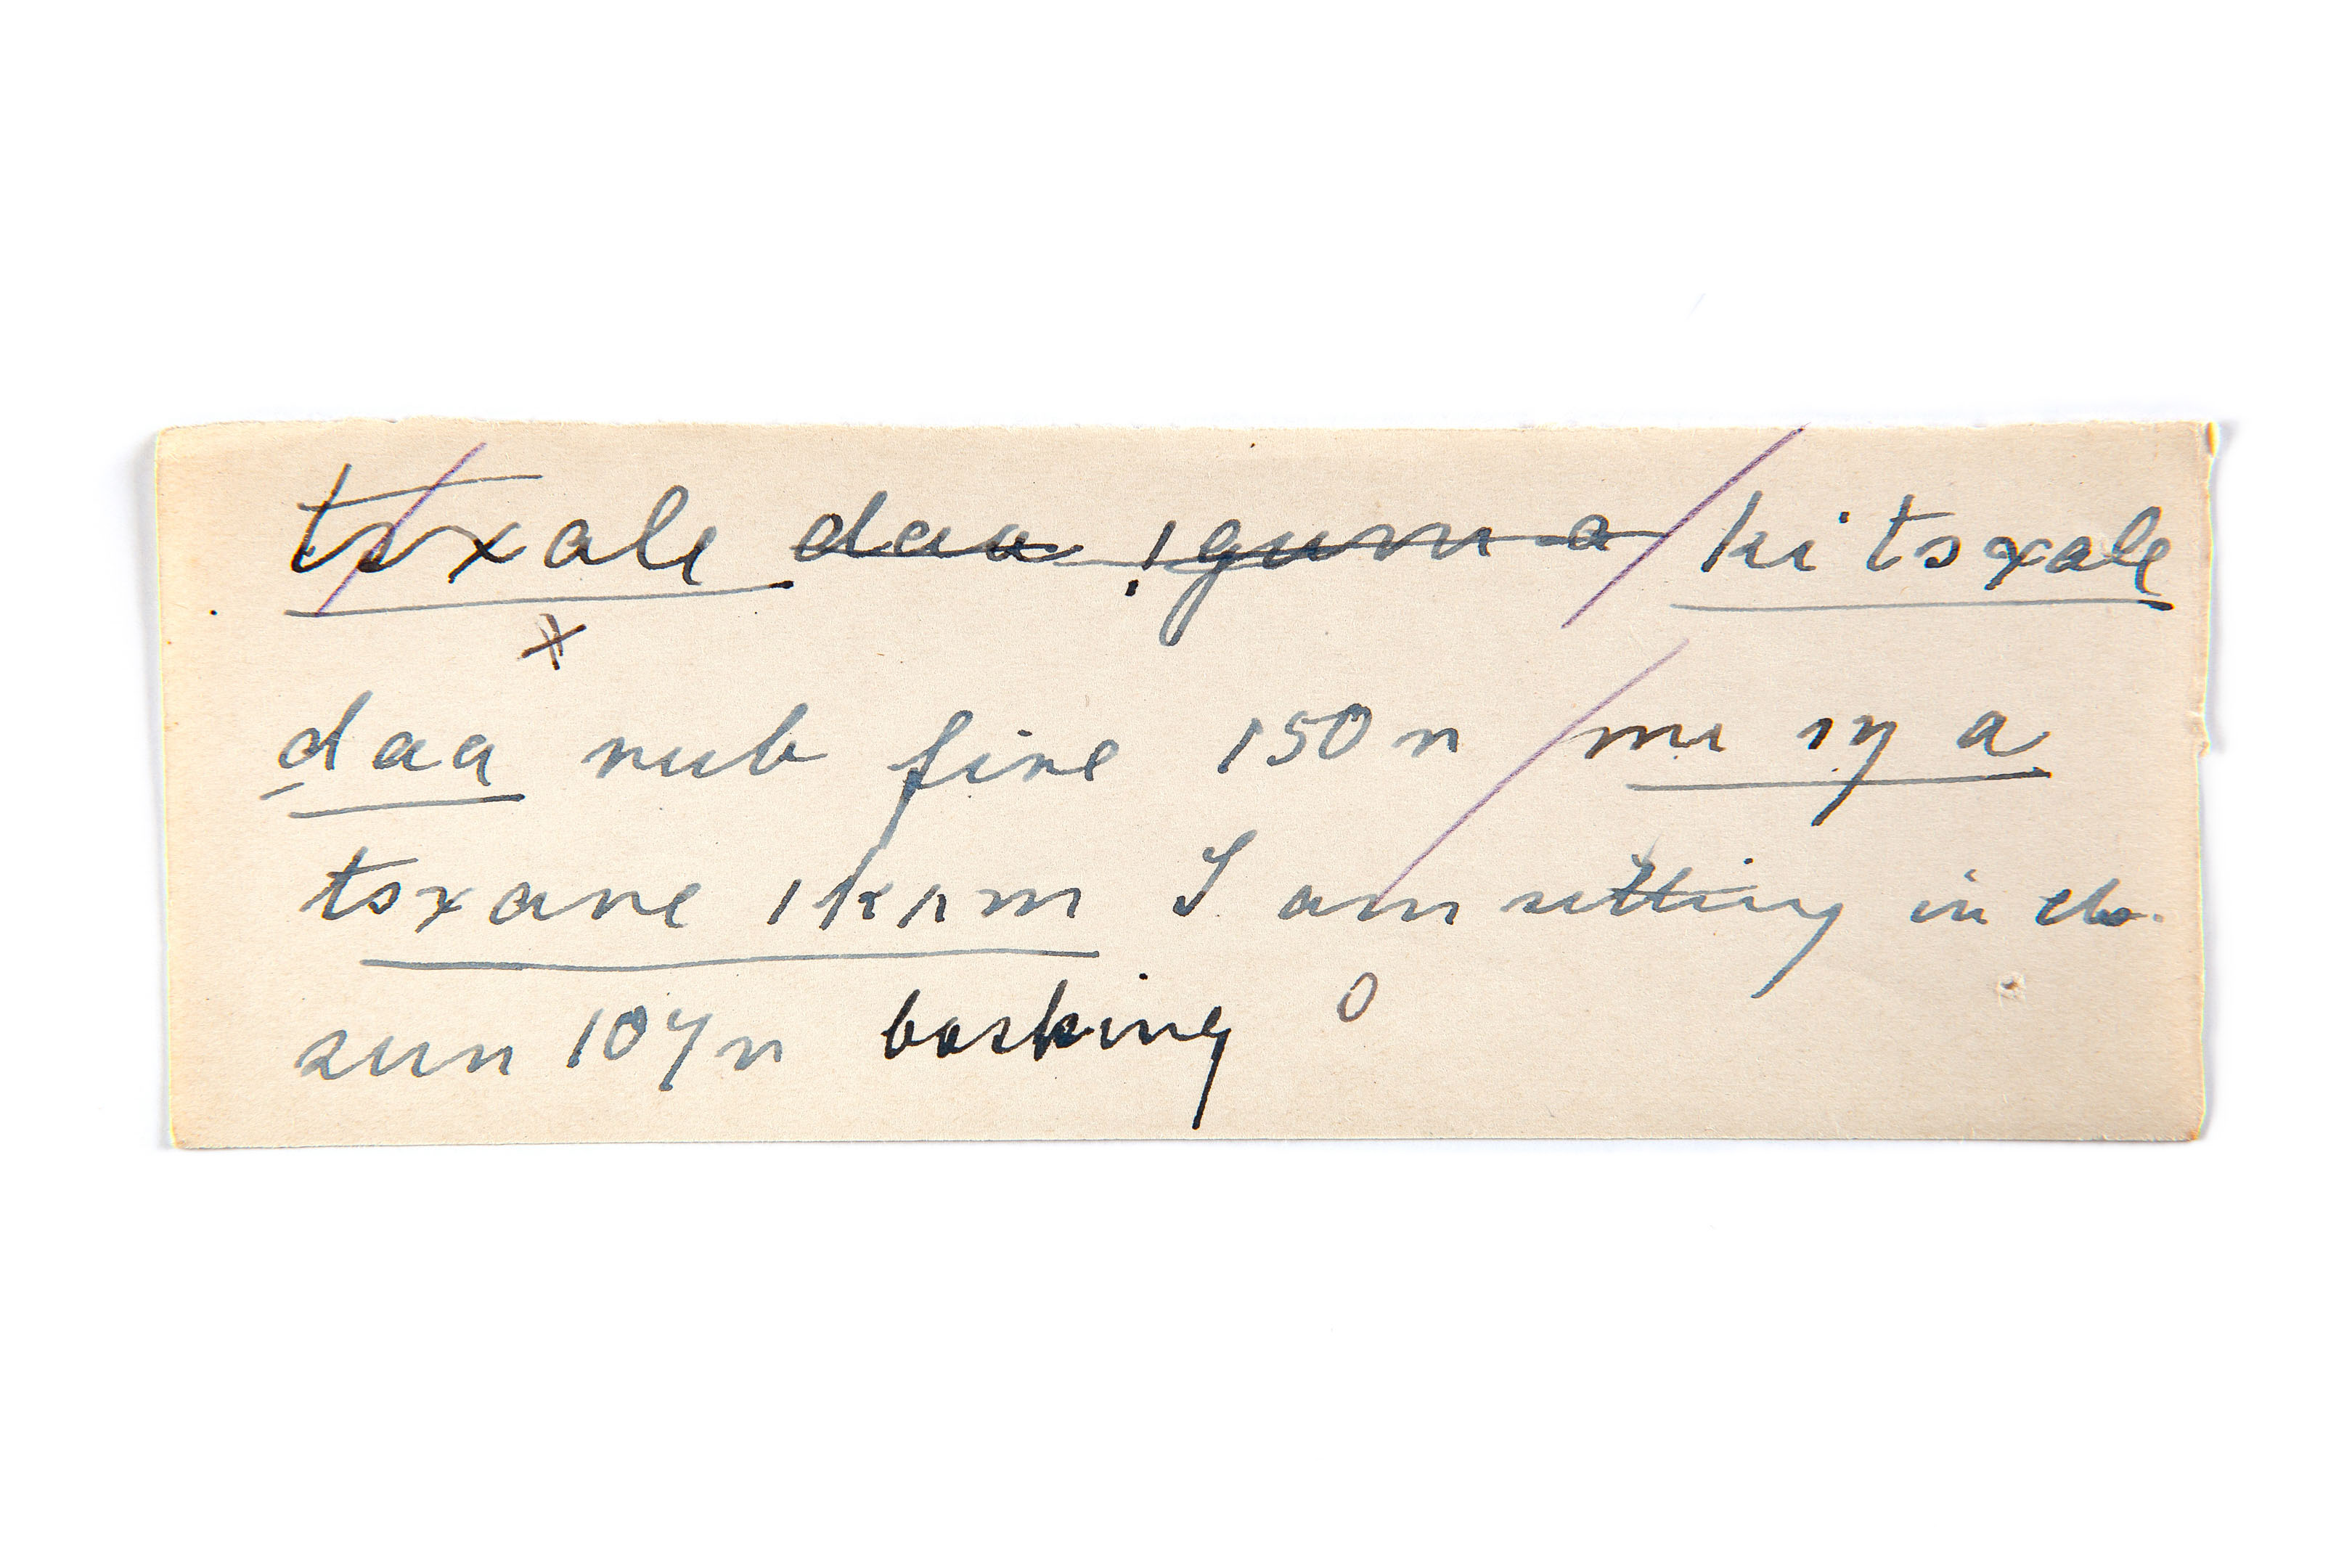 tsxale daa !gum a / ki tsxale
x
daa rub fire 150 n / mi ŋ a
tsxane |kʌm I am sitting in the
sun 104 n basking 0